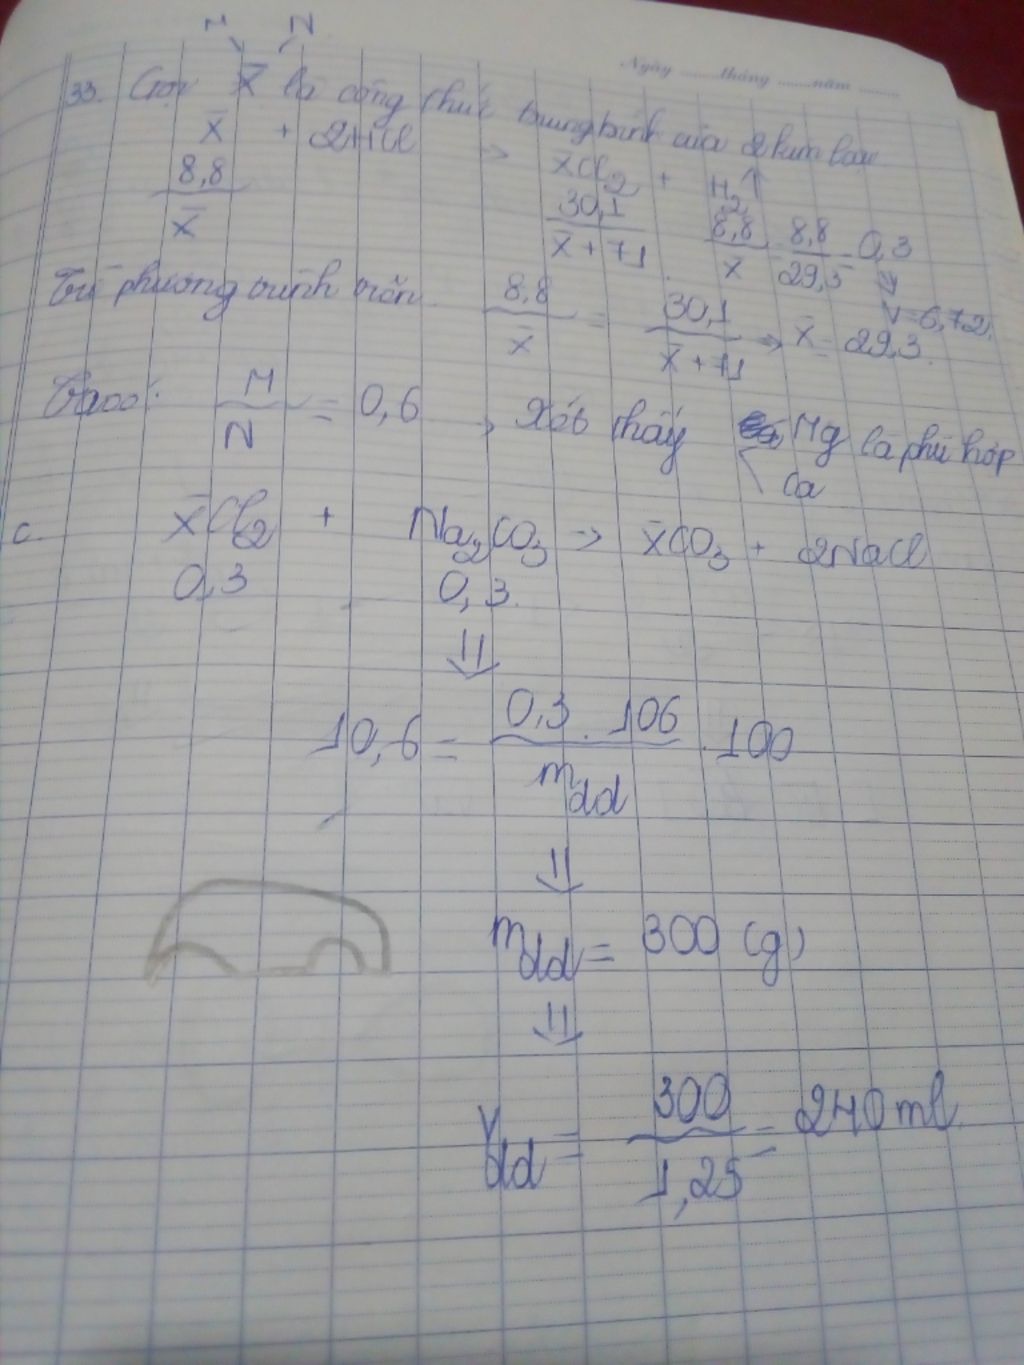 M N
Ngày ...... tháng ...... năm ......
33. Gọi X̄ là công thức trung bình của 2 kim loại
X̄ + 2HCl → X̄Cl₂ + H₂↑
8,8/X̄ 30,1/X̄+71 8,8/X̄ = 8,8/29,3 = 0,3
↓
V=6,72
Từ phương trình trên. 8,8/X̄ = 30,1/X̄+71 → X̄ = 29,3.
M/N = 0,6 → Xét thấy Mg là phù hợp
Ca
c. X̄Cl₂ + Na₂CO₃ → X̄CO₃ + 2NaCl
0,3 0,3.
⇓
10,6 = 0,3.106/mdd .100
⇓
mdd = 300 (g)
⇓
Vdd = 300/1,25 = 240ml